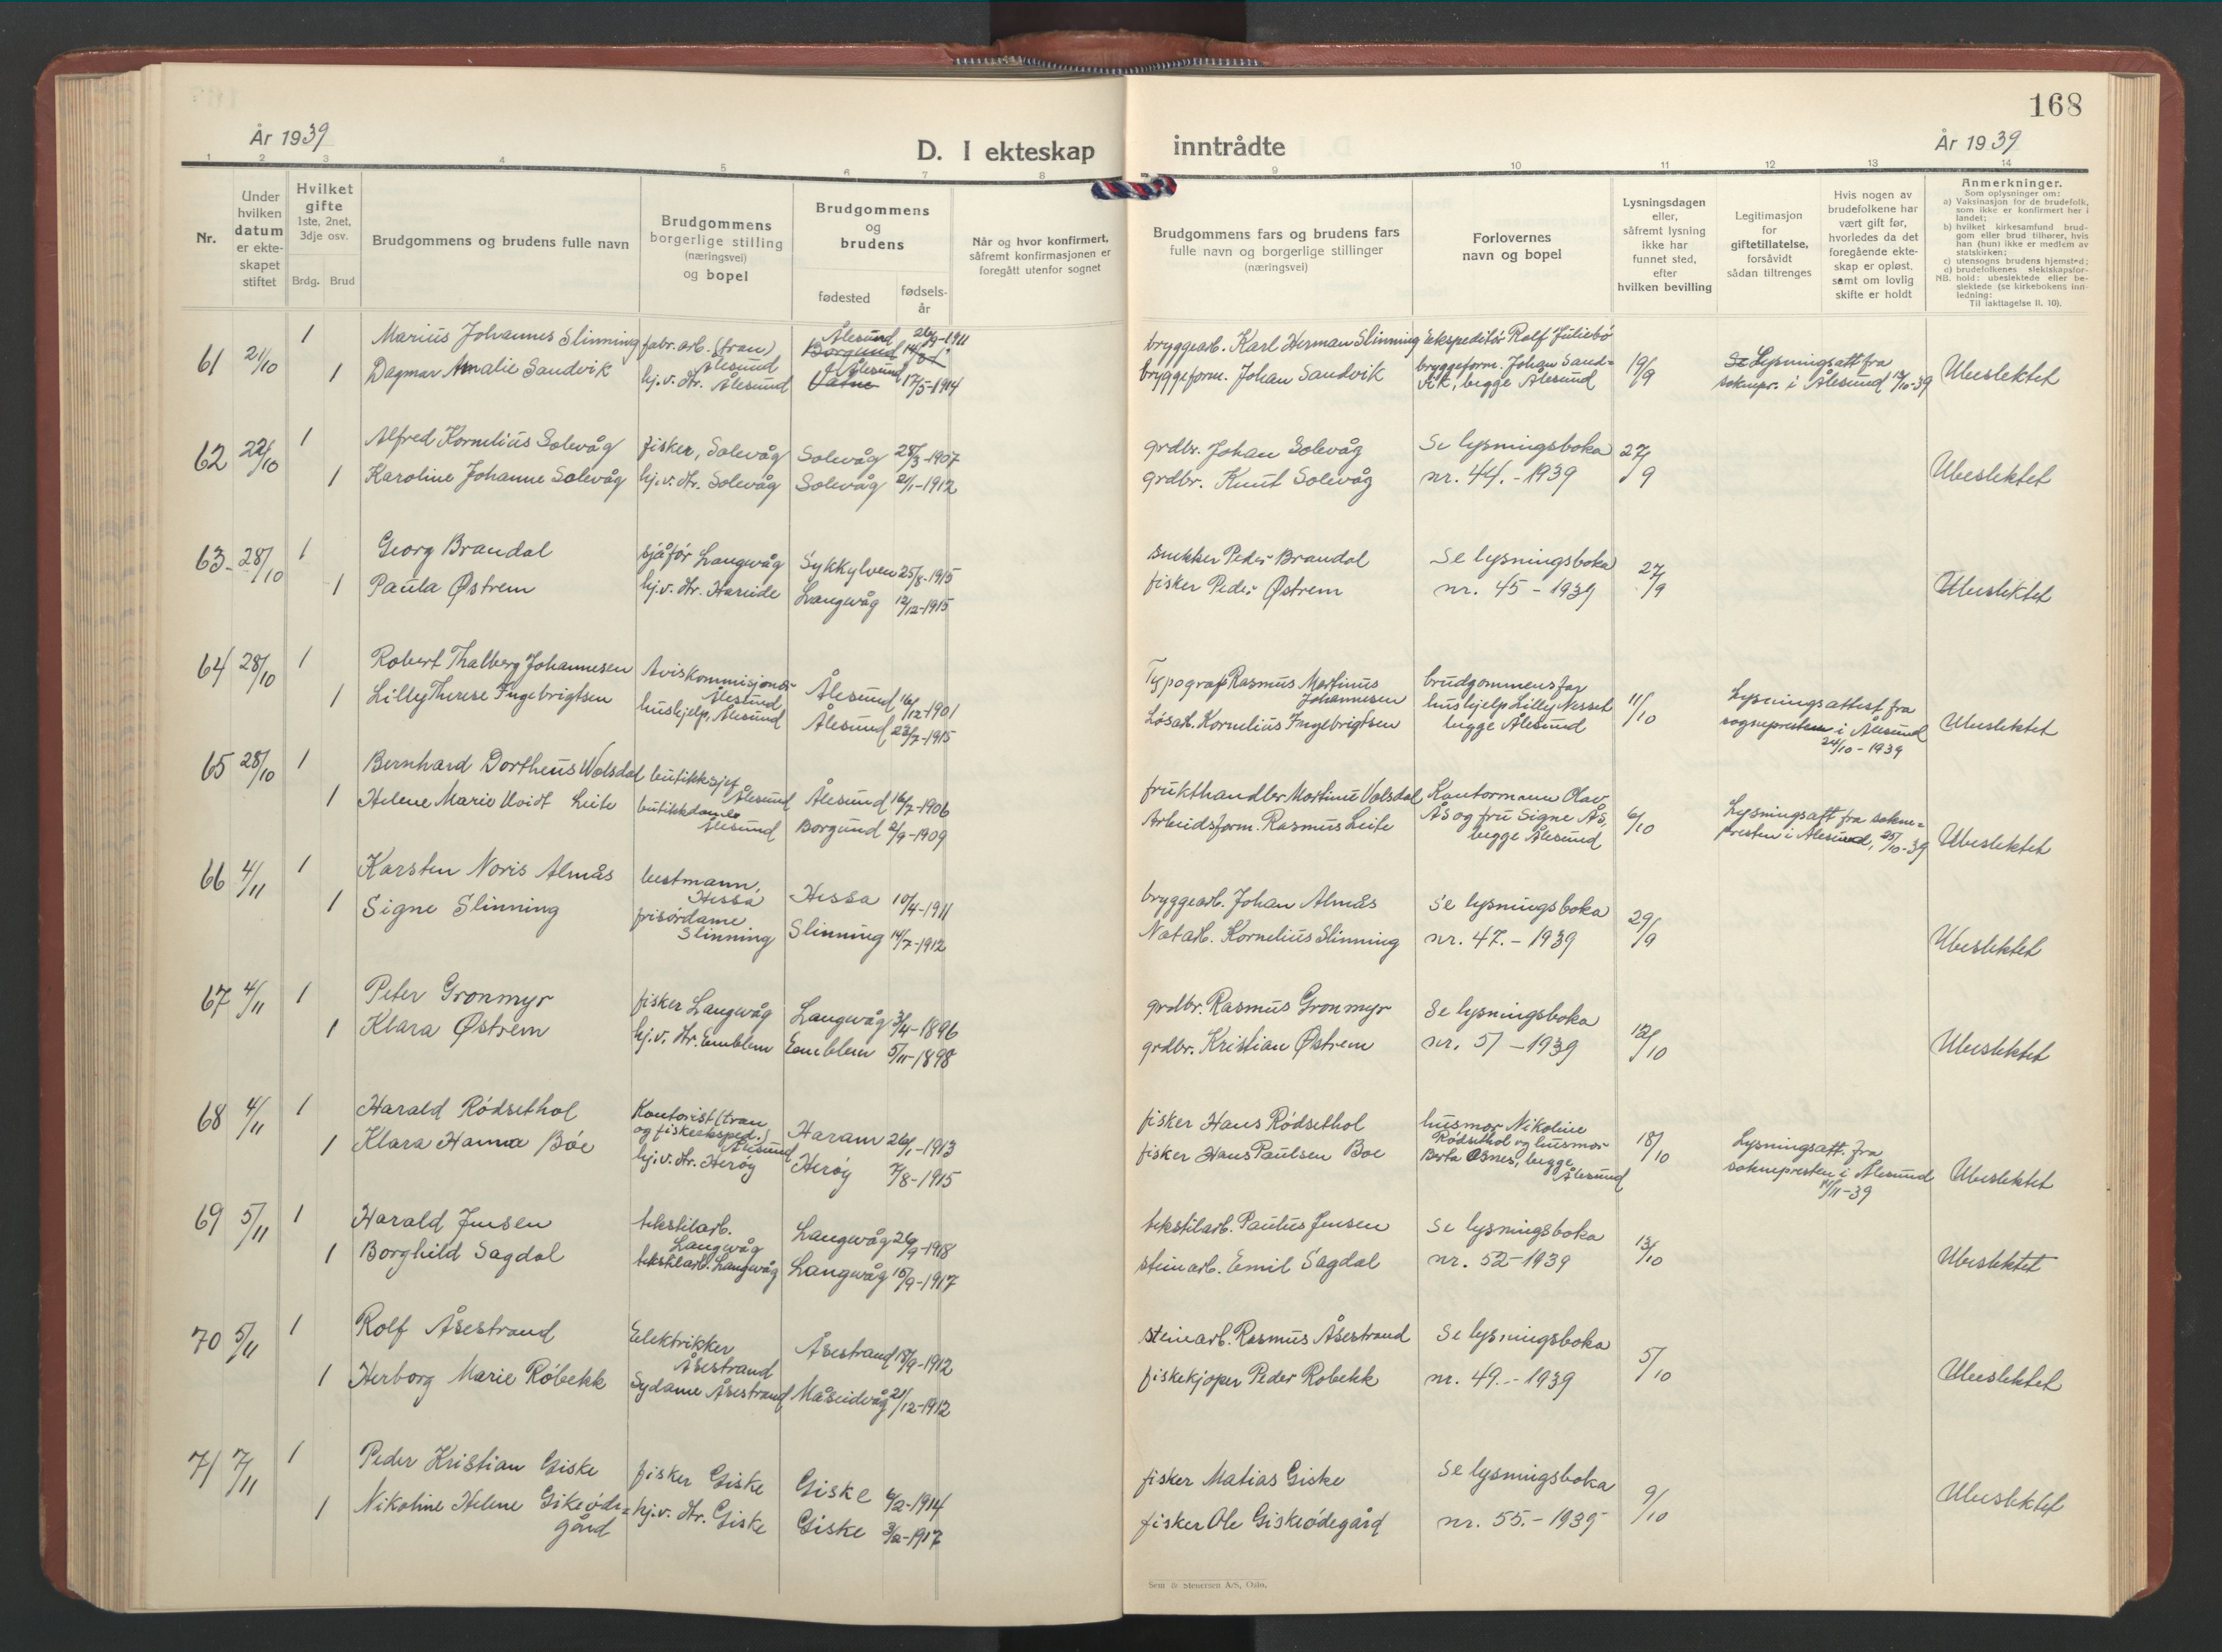 168
År 1939
D. I ekteskap inntrådte
År 1939
1 2 3 4 5 6 7 8 9 10 11 12 13 14
Nr.
Under hvilken datum er ekte-skapet stiftet
Hvilket gifte
1ste, 2net, 3dje osv.
Brdg. Brud
Brudgommens og brudens fulle navn
Brudgommens borgerlige stilling (næringsvei) og bopel
Brudgommens og brudens
fødested
fødsels-år
Når og hvor konfirmert, såfremt konfirmasjonen er foregått utenfor sognet
Brudgommens fars og brudens fars fulle navn og borgerlige stillinger (næringsvei)
Forlovernes navn og bopel
Lysningsdagen eller, såfremt lysning ikke har funnet sted, efter hvilken bevilling
Legitimasjon for giftetillatelse, forsåvidt sådan tiltrenges
Hvis nogen av brudefolkene har vært gift før, hvorledes da det foregående ekte-skap er opløst, samt om lovlig skifte er holdt
Anmerkninger.
Som oplysninger om:
a) Vaksinasjon for de brudefolk, som ikke er konfirmert her i landet;
b) hvilket kirkesamfund brud-gom eller brud tilhører, hvis han (hun) ikke er medlem av statskirken;
c) utensogns brudens hjemsted;
d) brudefolkenes slektskapsfor-hold: ubeslektede eller be-slektede (se kirkebokens inn-ledning:
NB.
Til iakttagelse II. 10).
61 21/10 1 Marius Johannes Slinning fabr.arb. (tran) Ålesund Ålesund Borgund 26/9-1911 bryggearb. Karl Herman Slinning Ekspeditör Rolf Juliebö
1 Dagmar Amalie Sandvik hj.v. str. Ålesund Ålesund Vatne 17/5-1914 bryggeform. Johan Sandvik bryggeform. Johan Sand=vik, begge Ålesund 19/9 Se Lysningsatt fra soknepr. i Ålesund 19/10-39 Ubeslektet
62 22/10 1 Alfred Kornelius Solevåg fisker, Solevåg Solevåg 28/3-1907 grdbr. Johan Solevåg Se lysningsboka 27/9
1 Karoline Johanne Solevåg hj.v. str. Solevåg Solevåg 2/1-1912 grdbr. Knut Solevåg nr. 44.-1939 Ubeslektet
63 28/10 1 Georg Brandal sjåfør Langevåg Sykkylven 25/8-1915 snekker Peder Brandal Se lysningsboka 27/9
1 Paula Østrem hj.v. str. Hareide Langevåg 12/12-1915 fisker Peder Østrem nr. 45-1939 Ubeslektet
64 28/10 1 Robert Thalberg Johannesen Aviskommisjonær Ålesund Ålesund 16/12-1901 Typograf Rasmus Martinus Johannesen brudgommens far 11/10
1 Lilly Therese Ingebrigtsen hushjelp, Ålesund Ålesund 23/7-1915 Løsarb. Kornelius Ingebrigtsen hushjelp Lilly Nesset begge Ålesund Lysningsattest fra sognepresten i Ålesund 24/10-1939 Ubeslektet
65 28/10 1 Bernhard Dortheus Valsdal butikksjef Ålesund Ålesund 16/7-1906 frukthandler Martinu Valsdal Kontormann Olav
1 Helene Marie Leite butikkdame Ålesund Borgund 2/9-1909 Arbeidsform. Rasmus Leite Ås og fru Signe Ås, begge Ålesund 6/10 Lysningsatt fra sokne=presten i Ålesund, 25/10-39 Ubeslektet
66 4/11 1 Karsten Noris Almås bestmann, Hessa Hessa 10/4-1911 bryggearb. Johan Almås Se lysningsboka 29/9
1 Signe Slinning frisördame Slinning Slinning 14/7-1912 Notarb. Kornelius Slinning nr. 47.-1939 Ubeslektet
67 4/11 1 Peter Grönmyr fisker Langevåg Langevåg 3/4-1896 grdbr. Rasmus Grönmyr Se lysningsboka 12/10
1 Klara Østrem hj.v. str. Emblem Emblem 5/11-1898 grdbr. Kristian Østrem nr. 51-1939 Ubeslektet
68 4/11 1 Harald Rödsethol Kontorist (tran og fiskeeksped.) Ålesund Haram 26/1-1913 fisker Hans Rödsethol husmor Nikoline Rödsethol og husmor 18/10
1 Klara Hanna Böe hj.v. str. Heröy Heröy 7/8-1915 fisker Hans Paulsen Boe Berta Osnes, begge Ålesund Lysningsatt. fra soknepresten i Ålesund Ubeslektet
69 5/11 1 Harald Jensen tekstilarb. Langevåg Langevåg 26/9-1918 tekstilarb. Paulus Jensen Se lysningsboka 13/10
1 Borghild Sagdal tekstilarb. Langevåg Langevåg 15/9-1917 steinarb. Emil Sagdal nr. 52-1939 Ubeslektet
70 5/11 1 Rolf Åsestrand Elektrikker Åsestrand Åsestrand 18/9-1912 steinarb. Rasmus Åsestrand Se lysningsboka 5/10
1 Herborg Marie Röbekk Sydame Åsestrand Måseidvåg 21/12-1912 fiskekjøper Peder Robekk nr. 49.-1939 Ubeslektet
71 7/11 1 Peder Kristian Giske fisker Giske Giske 6/2-1914 fisker Matias Giske Se lysningsboka 9/10
1 Nikoline Helene Gikeöde=gård hj.v. str. Giske Giske 3/2-1917 fisker Ole Giskeödegård nr. 55.-1939 Ubeslektet
Sem & Stenersen A/S, Oslo.